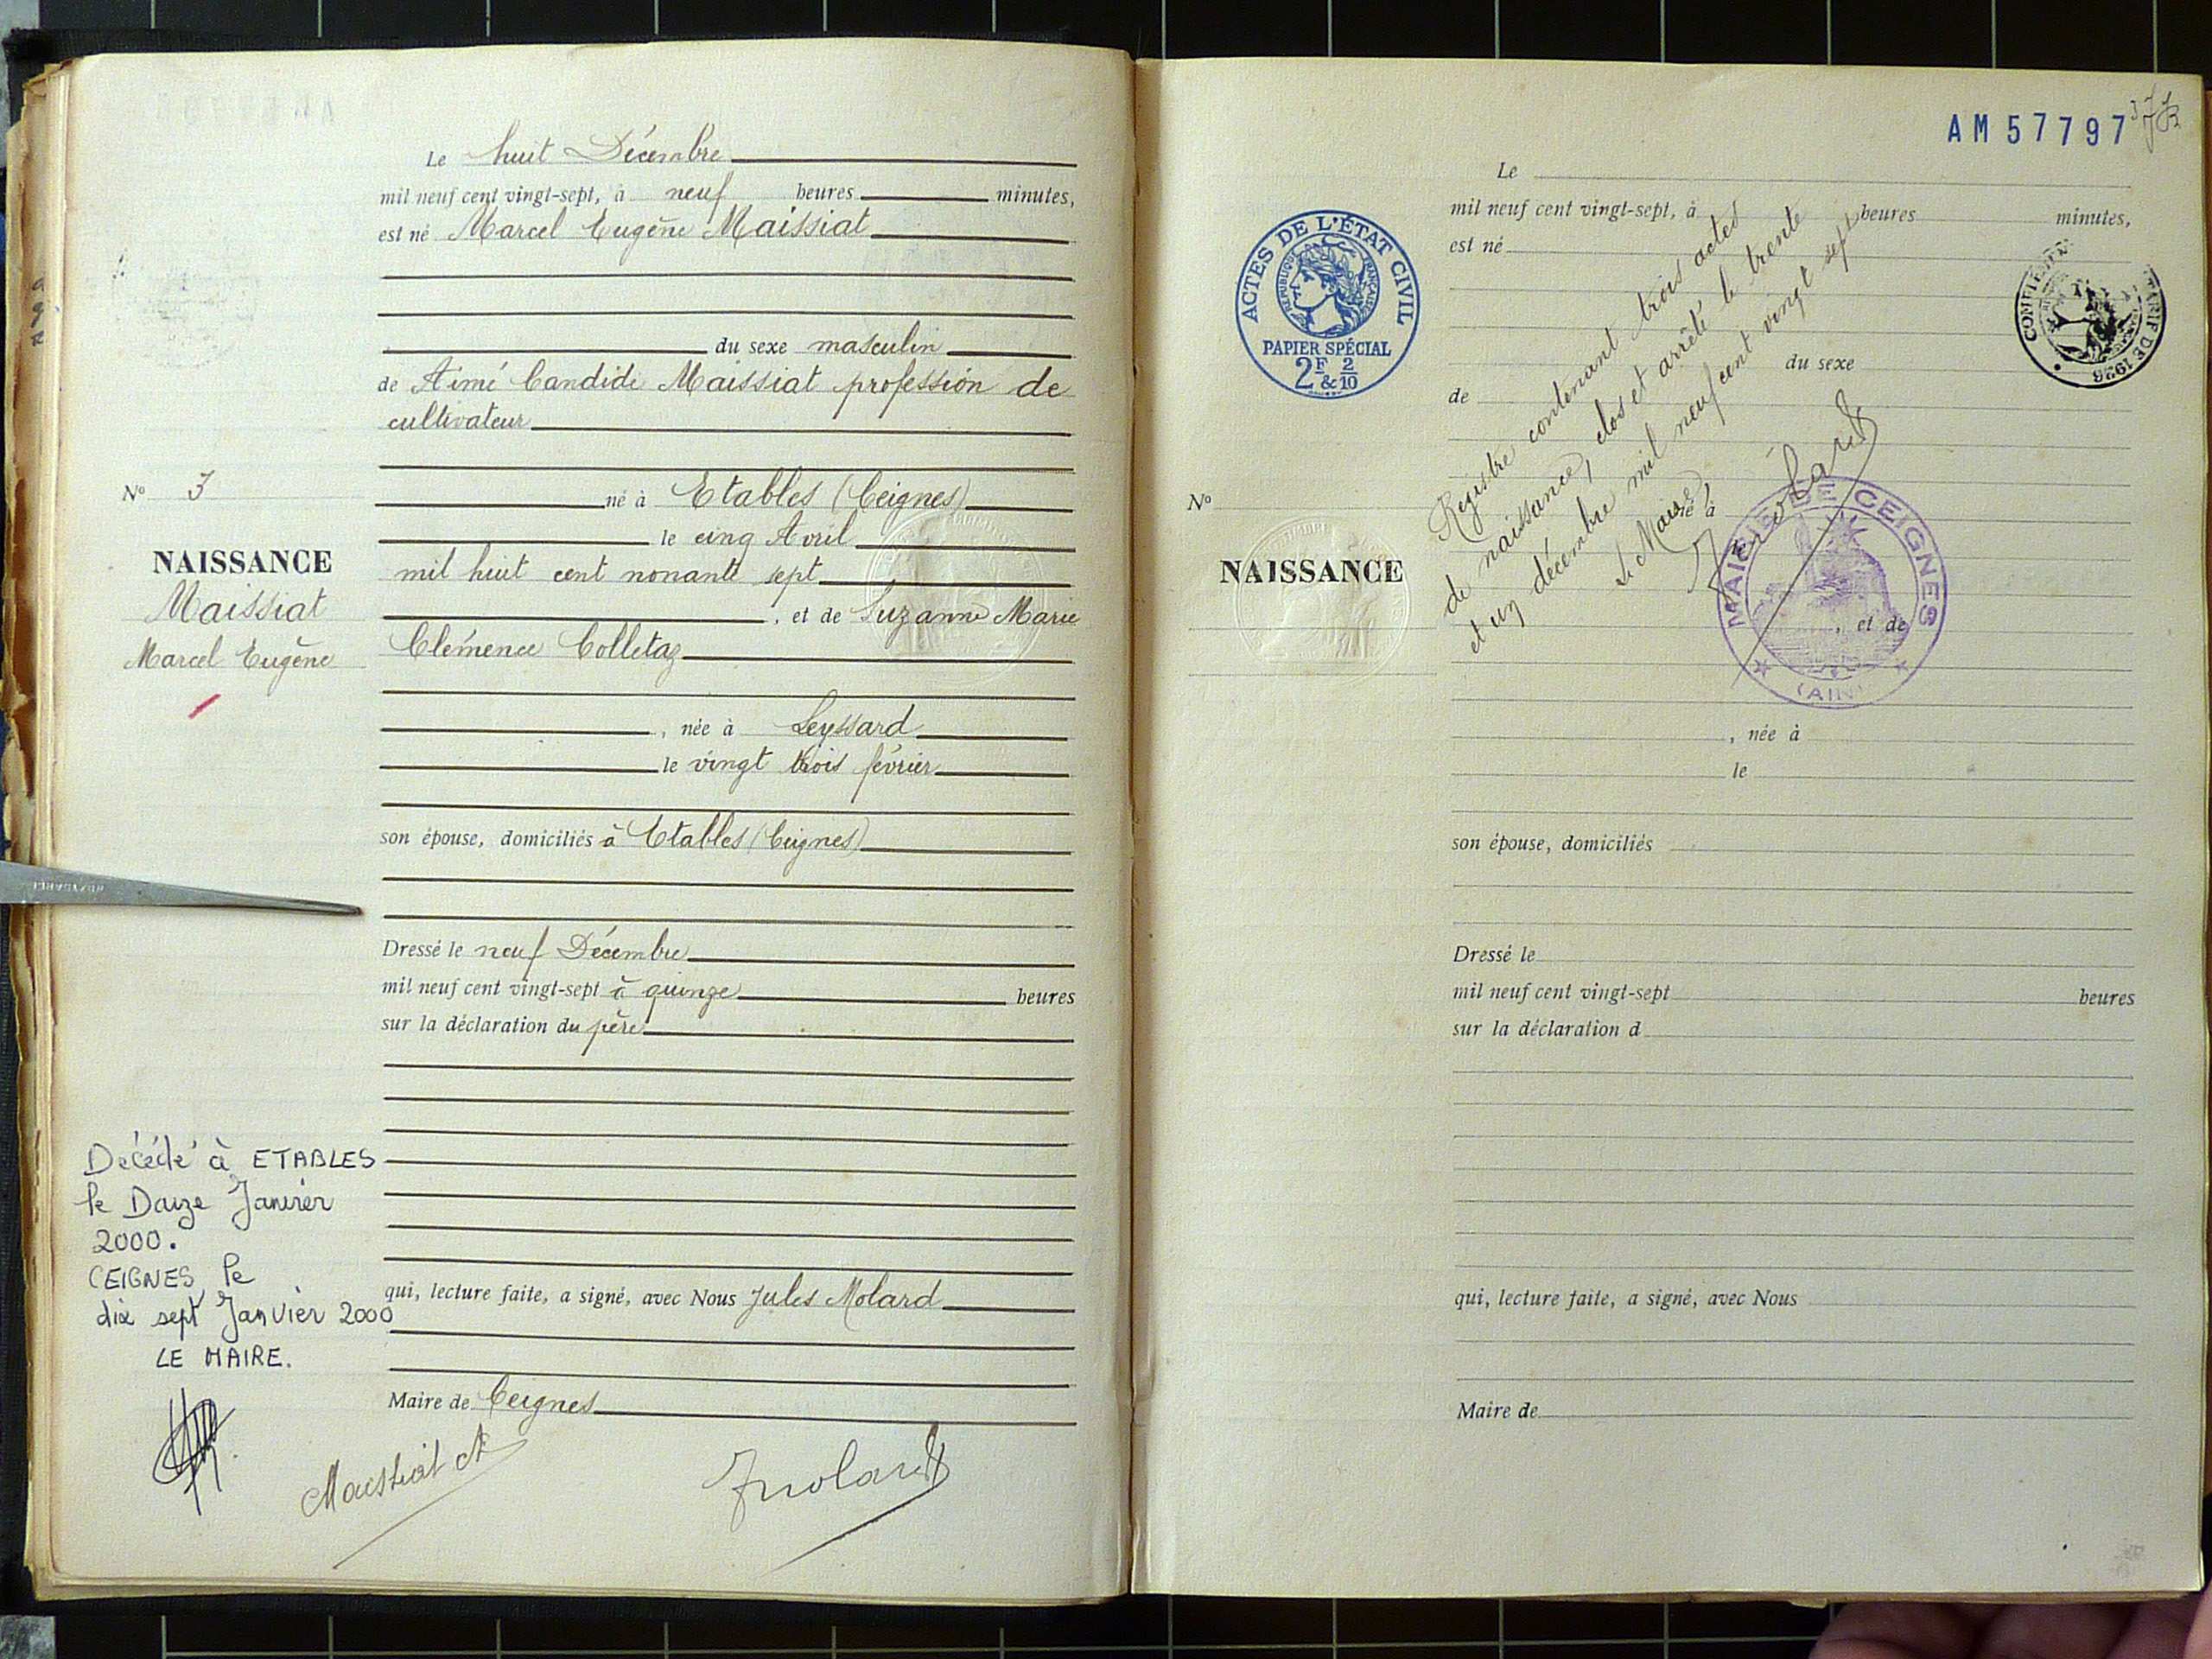 Le huit Décembre
mil neuf cent vingt-sept, à neuf heures minutes,
est né Marcel Eugène Maissiat
du sexe masculin
de Aimé Candide Maissiat profession de
cultivateur
né à Etables (Ceignes)
le cinq Avril
mil huit cent nonante sept
, et de Suzanne Marie
Clémence Colletaz
, née à Leyssard
le vingt trois février
son épouse, domiciliés à Etables (Ceignes)
Dressé le neuf Décembre
mil neuf cent vingt-sept à quinze heures
sur la déclaration du père
qui, lecture faite, a signé, avec Nous Jules Molard
Maire de Ceignes
Maissiat A
JMolard
No 3
NAISSANCE
Maissiat
Marcel Eugène
Décédé à ETABLES
le Douze Janvier
2000.
CEIGNES, le
dix sept Janvier 2000
LE MAIRE.
AM 57797
37
ACTES DE L'ÉTAT CIVIL
RÉPUBLIQUE FRANÇAISE
PAPIER SPÉCIAL
2F 2
& 10
TARIF DE 1926
No
NAISSANCE
Le
mil neuf cent vingt-sept, à heures minutes,
est né
du sexe
de
né à
, et de
, née à
le
son épouse, domiciliés
Dressé le
mil neuf cent vingt-sept heures
sur la déclaration d
qui, lecture faite, a signé, avec Nous
Maire de
Registre contenant trois actes
de naissance, clos et arrêté le trente
et un décembre mil neuf cent vingt sept
Le Maire
JMolard
MAIRIE DE CEIGNES
(AIN)